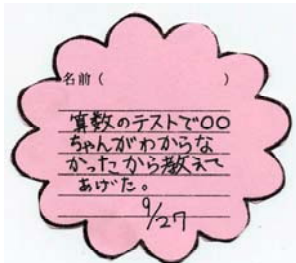 名前(　　　　　)
算数のテストで〇〇
ちゃんがわからな
かったから教えて
あげた。
9/27